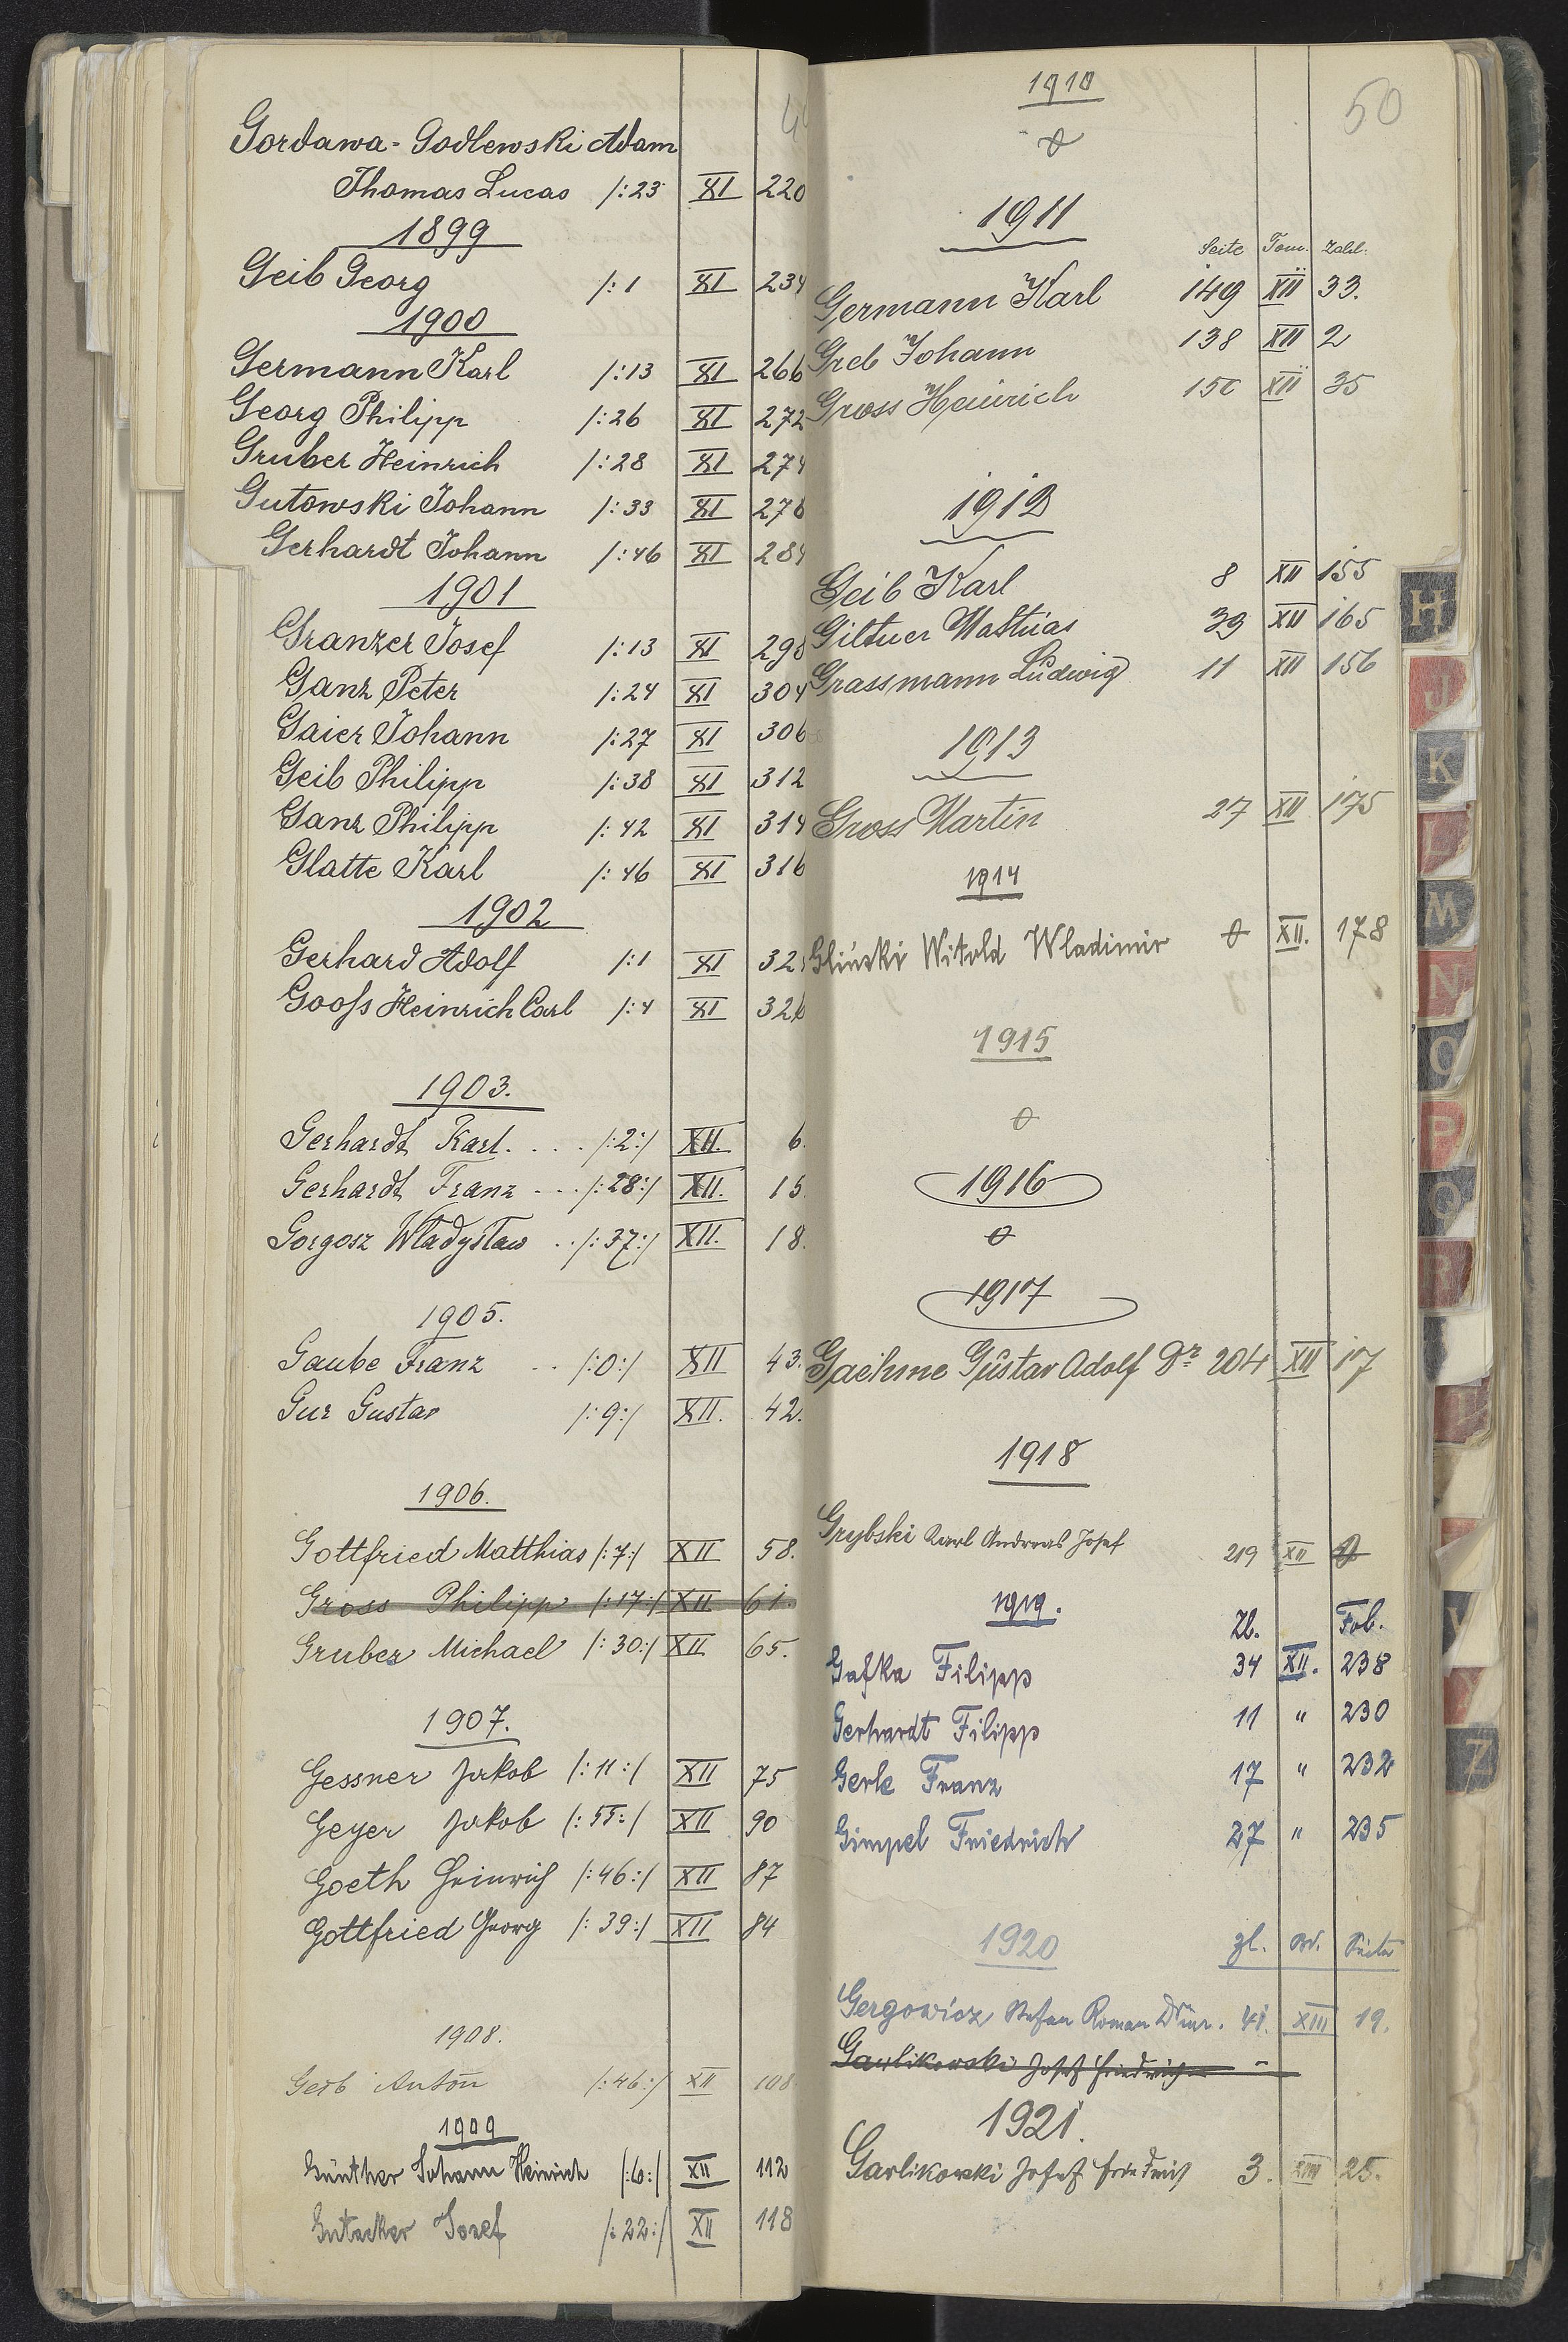 Gordawa-Godlewski Adam
Thomas Lucas /:23 XI 220
1899
Geib Georg /:1 XI 234
1900
Germann Karl /:13 XI 266
Georg Philipp /:26 XI 272
Gruber Heinrich /:28 XI 274
Gutowski Johann /:33 XI 276
Gerhardt Johann /:46 XI 284
1901
Granzer Josef /:13 XI 298
Ganz Peter /:24 XI 304
Gaier Johann /:27 XI 306
Geib Philipp /:38 XI 312
Ganz Philipp /:42 XI 314
Glatte Karl /:46 XI 316
1902
Gerhard Adolf /:1 XI 32
Gooſs Heinrich Carl /:4 XI 326
1903.
Gerhardt Karl. . . . /:2:/ XII. 6.
Gerhardt Franz - . . /:28:/ XII. 15.
Gorgosz Władysław . . /:37:/ XII. 18.
1905.
Gaube Franz . . /:0:/ XII 43.
Gur Gustav /:9:/ XII. 42.
1906.
Gottfried Matthias /:7:/ XII 58.
Gross Philipp /:17:/ XII 61.
Gruber Michael /:30:/ XII 65.
1907.
Gessner Jakob /:11:/ XII 75
Geyer Jakob /:55:/ XII 90
Goeth Heinrich /:46:/ XII 87
Gottfried Georg /:39:/ XII 84
1908.
Gerb Anton /:46:/ XII 108
1909
Günther Johann Heinrich /:6:/ XII 112
Gutacker Josef /:22:/ XII 118
50
1910
1911
Seite Tom. Zahl.
Germann Karl 149 XII 33.
Greb Johann 138 XII 2
Gross Heinrich 150 XII 35
1912
Geib Karl 8 XII 155
Giltner Mathias 39 XII 165
Grassmann Ludwig 11 XII 156
1913
Gross Martin 27 XII 175
1914
Gliński Witold Wladimir XII. 178
1915
1916
1917
Gaehme Gustav Adolf Dr 204 XII 17
1918
Grybski Karl Andreas Josef 219 XII
1919.
Zl. Fol.
Gafka Filipp 34 XII. 238
Gerhardt Filipp 11 " 230
Gerle Franz 17 " 232
Gimpel Friedrich 27 " 235
1920 zl. Bd. Seite
Gergowicz Stefan Roman 41. XIII 19.
Garlikowski Josef Friedrich -
1921.
Garlikowski Josef Friedrich 3. XIII 25.
H
J
K
L
M
N
O
P
Q
R
Z